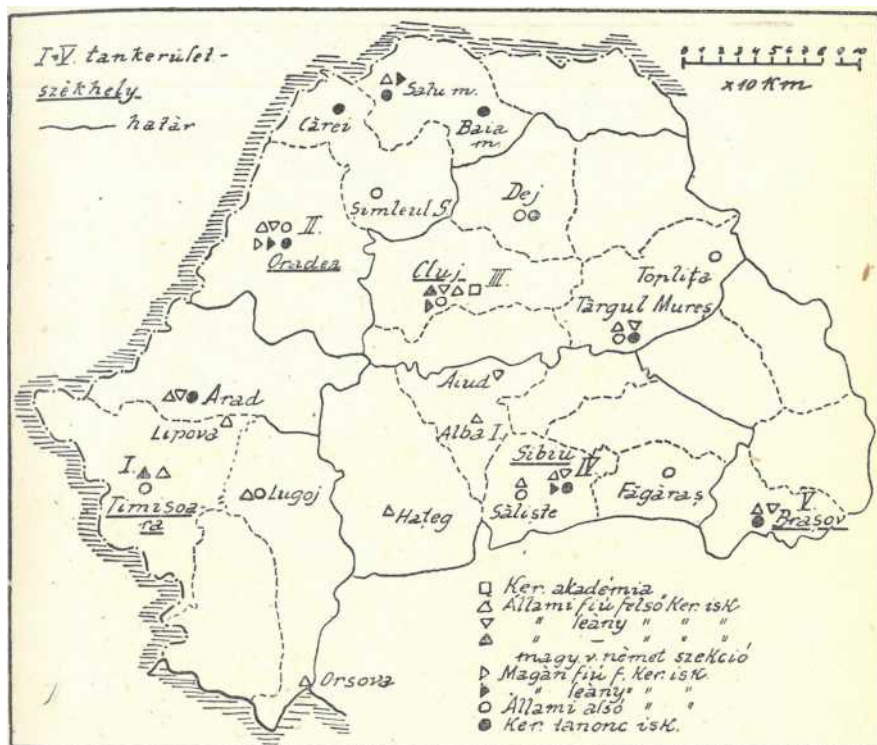 I-V. tankerület-
székhely
határ
0 1 2 3 4 5 6 7 8 9 10
x10 Km
Satu m.
Cărei
Baia
m.
Simleul S.
Dej
II.
Oradea
Cluj
III.
Toplița
Târgul Mureș
Arad
Lipova
Aiud
Alba I.
I.
Timișoa
ra
Lugoj
Hațeg
Sibiu
IV
Săliște
Făgăraș
V
Brașov
Orsova
Ker. akadémia
Állami fiú felső Ker. isk.
" leány " " "
" – " " "
magy. v. német szekció
Magán fiú f. Ker. isk.
" leány " " "
Állami alsó "
Ker. tanonc isk.